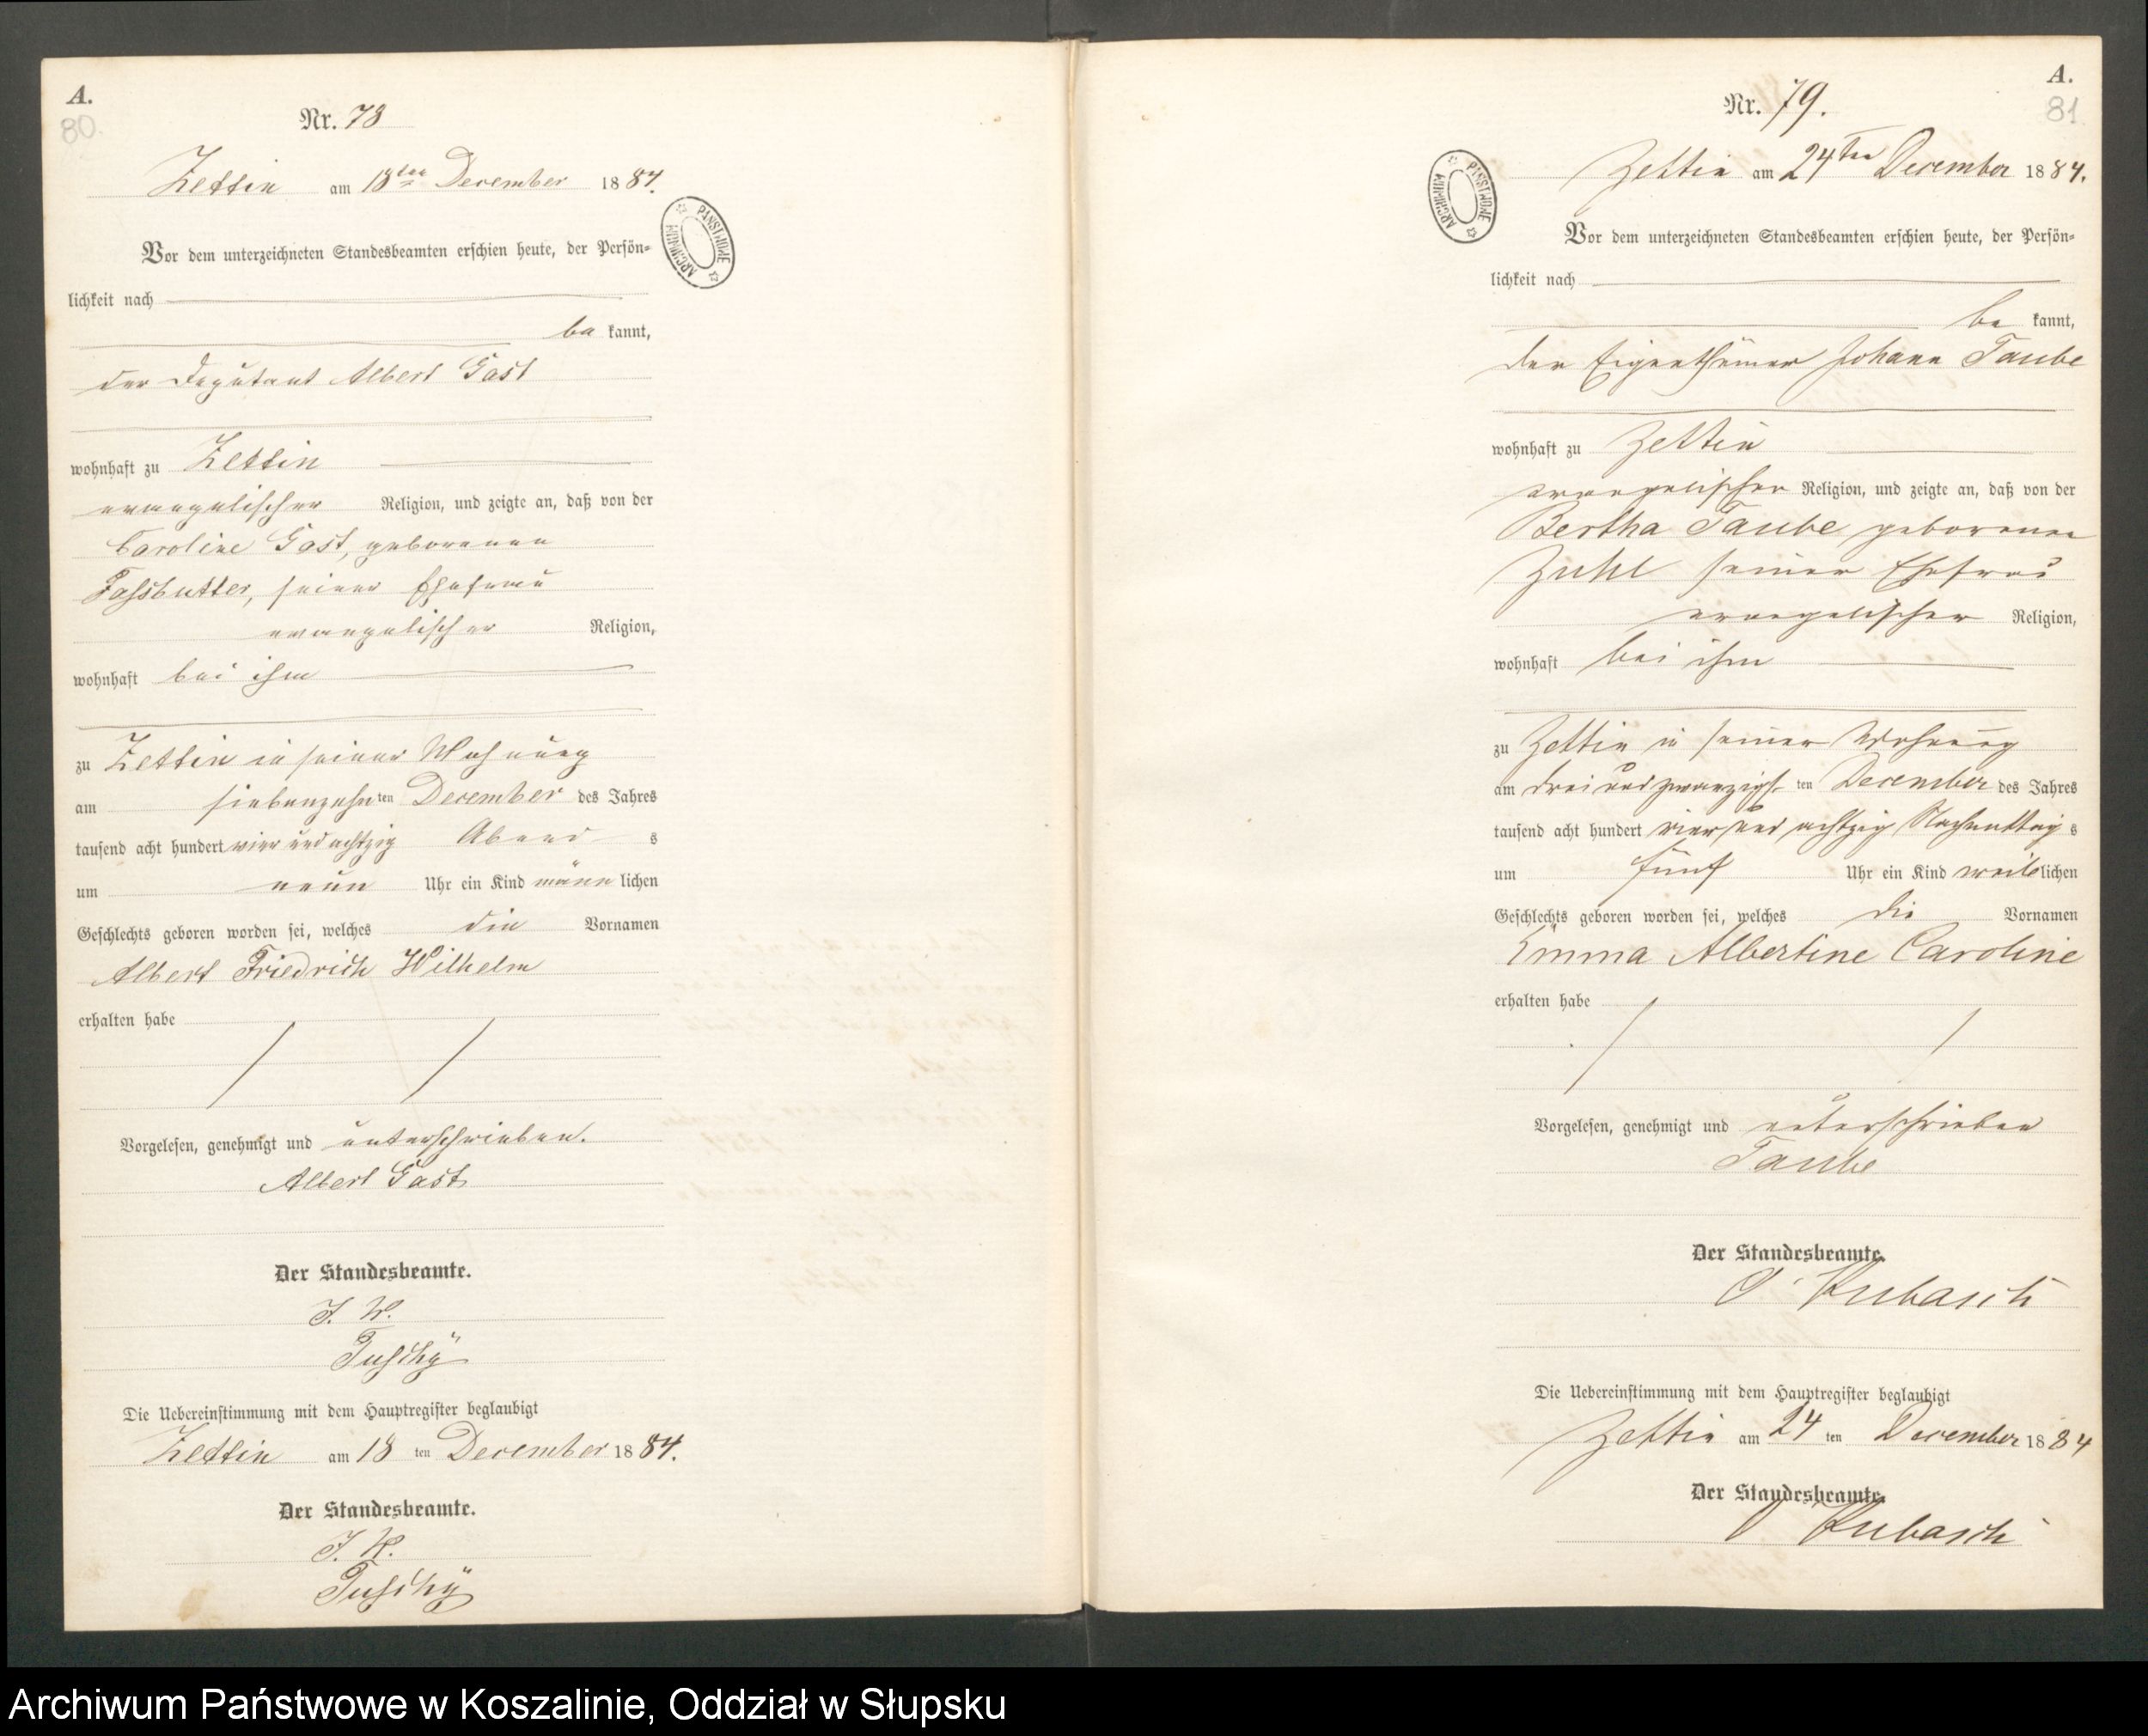 A.
80.
Nr. 78
Zettin am 18ten December 1884.
Vor dem unterzeichneten Standesbeamten erschien heute, der Persön-
lichkeit nach
be kannt,
der Deputant Albert Gast
wohnhaft zu Zettin
evangelischer Religion, und zeigte an, daß von der
Caroline Gast, geborenen
Fassbutter, seiner Ehefrau
evangelischer Religion,
wohnhaft bei ihm
zu Zettin in seiner Wohnung
am siebenzehnten December des Jahres
tausend acht hundert vier und achtzig Abend s
um neun Uhr ein Kind männlichen
Geschlechts geboren worden sei, welches die Vornamen
Albert Friedrich Wilhelm
erhalten habe
Vorgelesen, genehmigt und unterschrieben.
Albert Gast
Der Standesbeamte.
Die Uebereinstimmung mit dem Hauptregister beglaubigt
Zettin am 18 ten December 1884.
Der Standesbeamte.
PANSTWOWE ARCHIWUM
A.
81
Nr. 79.
Zettin am 24ten December 1884.
PANSTWOWE ARCHIWUM
Vor dem unterzeichneten Standesbeamten erschien heute, der Persön-
lichkeit nach
be kannt,
der Eigenthümer Johann Taube
wohnhaft zu Zettin
evangelischer Religion, und zeigte an, daß von der
Bertha Taube geborenen
Zuhl seiner Ehefrau
evangelischer Religion,
wohnhaft bei ihm
zu Zettin in seiner Wohnung
am drei und zwanzigsten December des Jahres
tausend acht hundert vier und achtzig Nachmittag s
um fünf Uhr ein Kind weiblichen
Geschlechts geboren worden sei, welches die Vornamen
Emma Albertine Caroline
erhalten habe
Vorgelesen, genehmigt und unterschrieben
Taube
Der Standesbeamte.
Kubasch
Die Uebereinstimmung mit dem Hauptregister beglaubigt
Zettin am 24 ten December 1884
Der Standesbeamte.
Kubasch
Archiwum Państwowe w Koszalinie, Oddział w Słupsku